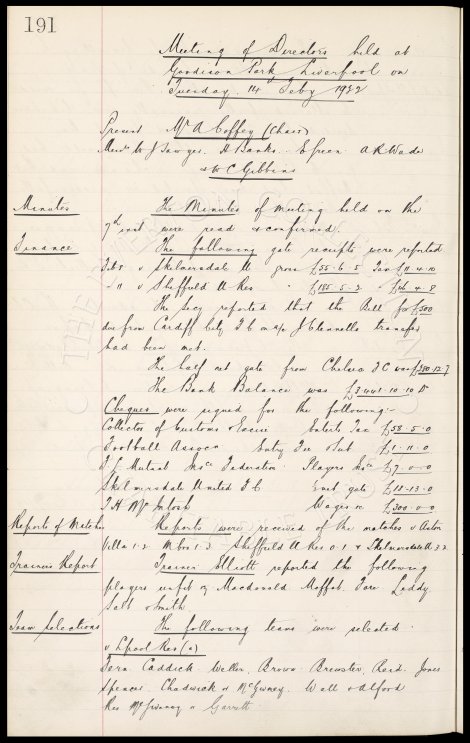 191
Meeting of Directors held at
Goodison Park, Liverpool on
Tuesday 14 Feby 1922
Present Mr A Coffey (Chair)
Messrs W J Sawyer. H Banks. E Green. A R Wade
& W C Gibbins
Minutes
The Minutes of meeting held on the
7th inst were read & confirmed.
Finance
The following gate receipts were reported
Feb 8 v Skelmersdale U gross £55-6-5 Tax £11-4-10
" 11 v Sheffield U Res " £185-5-3 " £46-4-8
The Secy reported that the Bill for £500
due from Cardiff City F C on a/c J Clennells transfer
had been met.
The half net gate from Chelsea F C was £380-12-7
The Bank Balance was £3441-10-10 Dr
Cheques were signed for the following:-
Collector of Customs & Excise Enterts Tax £58-5-0
Football Associn Entry Fee & Sub £1-11-0
F L Mutual Federation Players £7-0-0
Skelmersdale United F C gate £18-13-0
T H McIntosh Wages £300-0-0
Reports of Matches
Reports were received of the matches v Aston
Villa 1-2 Mbro 1-3 Sheffield U Res 0-1 & Skelmersdale U 3-2
Trainers Report
Trainer Elliott reported the following
players unfit eg Macdonald. Moffat. Fare. Leddy.
Salt & Smith
Team Selections
The following teams were selected
v Lpool Res (a)
Fern. Caddick. Weller. Brown. Brewster. Reid. Jones
Spencer. Chadwick or McGivney. Wall & Alford
Res McGivney or Garratt